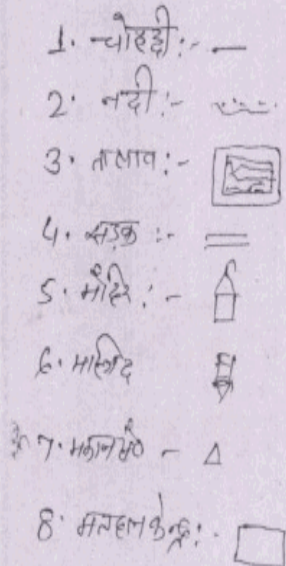 1. चौहद्दी :-
2. नदी :-
3. तालाव :-
4. सड़क :-
5. मंदिर :-
6. मस्जिद
7. मकान -
8. मतदान केन्द्र :-